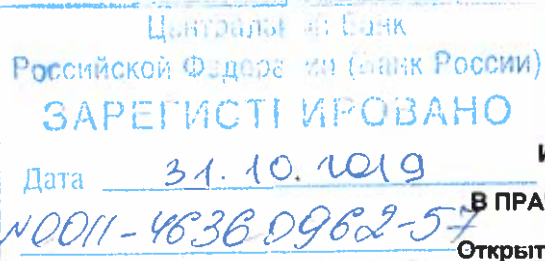 Центральный Банк
Российской Федерации (Банк России)
ЗАРЕГИСТРИРОВАНО
Дата 31.10.2019
И
N0011-46360962-57
В ПРА
Открыт